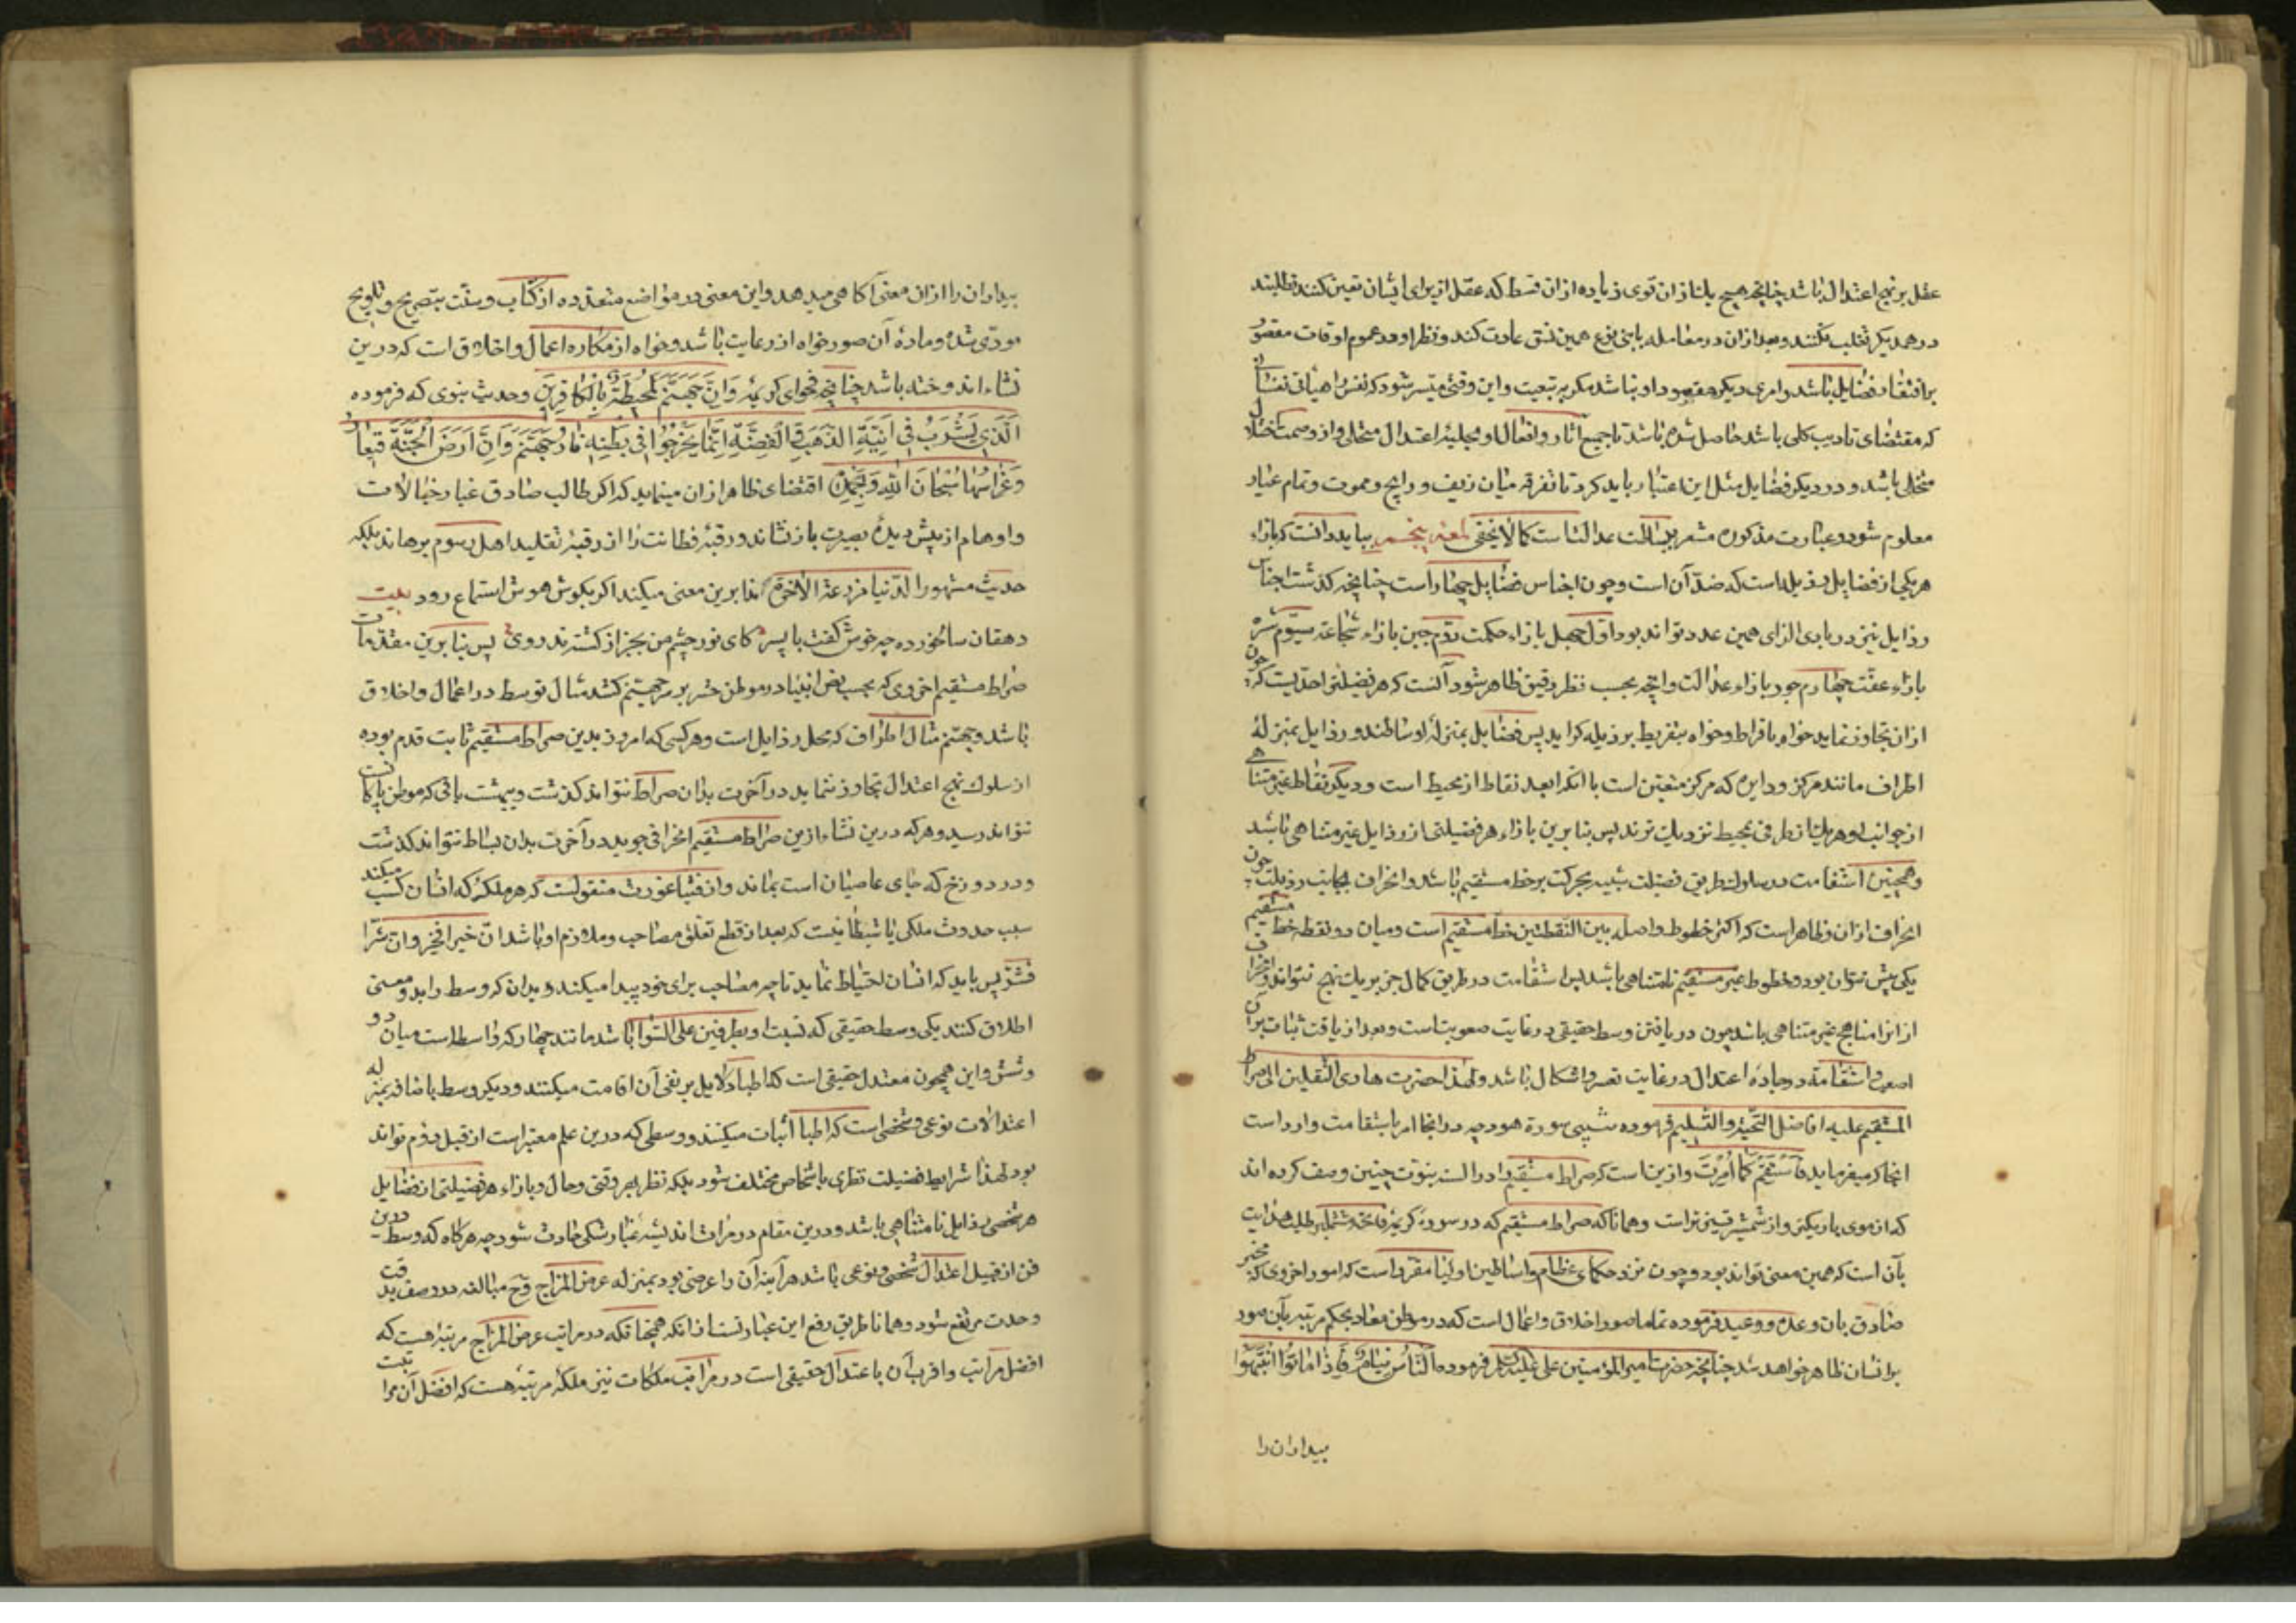 عقل بر نهج اعتدال باشد چنانچه هیچ یک از ان قوی زیاده از ان قسط که عقل از برای ایشان تعین کند نطلبند
در همدیکر تغلب نکنند و بعد از ان در معامله با بنی نوع همین نسق عادت کند و نظر او در عموم اوقات مقصور
بر اقتضاء فضایل باشد و امری دیکر مقصود او نباشد مکر بر تبعیت و این وقتی میسر شود که نفس را هیأتی نفسانی
که مقتضای تادیب کلی باشد حاصل شده باشد تا جمیع آثار و افعال او بحلیهٔ اعتدال متحلی و از وصمت اختلال
متخلی باشد و در دیکر فضایل مثل این اعتبار باید کرد تا تفرقه میان زیف و رایج و مموت و تمام عیار
معلوم شود و عبارت مذکوره مشعر ببساطت عدالت است کما لا یخفی لمعه پنجم بباید دانست که بازاء
هر یکی از فضایل رذیله است که ضد آن است و چون اجناس فضایل چهار است چنانچه کذشت اجناس
رذایل نیز در بادی الرای همین عدد تواند بود اول جهل بازاء حکمت دوم جبن بازاء شجاعت سیوم شره
بازاء عفت چهارم جور بازاء عدالت و انچه بحسب نظر دقیق ظاهر شود آنست که هر فضیلتی را حدیست که چون
از ان تجاوز نماید خواه بافراط و خواه بتفریط برذیله کراید پس فضایل بمنزلهٔ اوساطند و رذایل بمنزلهٔ
اطراف مانند مرکز و دایره که مرکز متعین است با انکه ابعد نقاط از محیط است و دیکر نقاط غیر متناهی
از جوانب او هر یک از طرفی بمحیط نزدیک ترند پس بنابرین بازاء هر فضیلتی از رذایل غیر متناهی باشد
و همچنین استقامت در سلوک طریق فضیلت شبیه بحرکت بر خط مستقیم باشد و انحراف بجانب رذیلت چون
انحراف از ان و ظاهر است که اکثر خطوط واصله بین النقطتین خط مستقیم است و میان دو نقطه خط مستقیم
یکی بیش نتوان بود و خطوط غیر مستقیم نامتناهی باشد پس استقامت در طریق کمال جز بر یک نهج نتواند و انحراف
از انرا مناهج غیر متناهی باشد چون دریافتن وسط حقیقی در غایت صعوبت است و بعد از یافت ثبات بر آن
اصعب و استقامت در جادهٔ اعتدال در غایت تعسر و اشکال باشد و لهذا حضرت هادی الثقلین الی صراط
المستقیم علیه افاضل التحیة و التسلیم فرموده شیبی سورة هود چه در انجا امر باستقامت وارد است
انجا که میفرماید فاستقم کما امرت و ازین است که صراط مستقیم را در السنه نبوت چنین وصف کرده اند
که از موی باریکتر و از شمشیر تیزتر است و همانا که صراط مستقیم که در سورهٔ کریمهٔ فاتحه مشتمل بر طلب هدایت
بآن است که همین معنی تواند بود و چون نزد حکمای عظام و اساطین اولیا مقرر است که امور اخروی که مخبر
صادق بان وعده و وعید فرموده تماما صور اخلاق و اعمال است که در موطن معاد بحکم مرتبه بآن صور
بر انسان ظاهر خواهد شد چنانچه حضرت امیر المؤمنین علی علیه السلم فرموده الناس نیام فاذا ماتوا انتبهوا
بیداران را
بیداران را از ان معنی آکاهی میدهد و این معنی در مواضع متعدده از کتاب و سنت بتصریح و تلویح
مودّی شده و مادهٔ آن صور خواه از رعایت باشد و خواه از مکاره اعمال و اخلاق است که درین
نشاء اندوخته باشد چنانچه فحوای کریمهٔ وَاِنَّ جَهَنَّمَ لَمُحِیطَةٌ بِالْکافِرِینَ و حدیث نبوی که فرموده
اَلَّذِی یَشْرَبُ فِی آنِیَةِ الذَّهَبِ وَالْفِضَّةِ اِنَّما یُجَرْجِرُ فِی بَطْنِهِ نارُ جَهَنَّمَ وَاَنَّ اَرْضَ الْجَنَّةِ قِیعانٌ
وَغِراسُها سُبْحانَ اللهِ وَبِحَمْدِهِ اقتضای ظاهر از ان مینماید که اکر طالب صادق غبار خیالات
و اوهام از پیش دیدهٔ بصیرت باز نشاند و رقبهٔ فطانت را از ربقهٔ تقلید اهل رسوم برهاند بلکه
حدیث مشهور الدنیا مزرعة الاخرة اندا برین معنی میکند اکر بکوش هوش استماع رود بیت
دهقان سالخورده چه خوش کفت با پسر کای نور چشم من بجز از کشته ندروی پس بنابرین مقدمات
صراط مستقیم اخروی که بحسب نص انبیا در موطن حشر بر سر جهنم کشند مثال توسط در اعمال و اخلاق
باشد و جهنم مثال اطراف که محل رذایل است و هر کسی که امروز بدین صراط مستقیم ثابت قدم بوده
از سلوک نهج اعتدال تجاوز ننماید در آخرت بدان صراط نتواند کذشت و ببهشت باقی که موطن پاکانست
نتواند رسید و هر که درین نشاء ازین صراط مستقیم انحراف جوید در آخرت بدان بساط نتواند کذشت
و در دوزخ که جای عاصیان است بماند و از فیثاغورث منقولست که هر ملکهٔ که انسان کسب میکند
سبب حدوث ملکی یا شیطانیست که بعد از قطع تعلق مصاحب و ملازم او باشد ان خیرا فخیر و ان شرا
فشر پس باید که انسان احتیاط نماید تا چه مصاحب برای خود پیدا میکند و بدان که وسط را بدو معنی
اطلاق کنند یکی وسط حقیقی که نسبت او بطرفین علی السوا باشد مانند چهار که واسط است میان دو
و شش و این همچون معتدل حقیقی است که اطبا دلایل بر نفی آن اقامت میکنند و دیکر وسط باضافه بمنزله
اعتدالات نوعی و شخصی است که اطبا اثبات میکنند و وسطی که درین علم معتبر است از قبیل دوم تواند
بود لهذا شرایط فضیلت نظری باشخاص مختلف شود بلکه نظر بهر وقتی و حال و بازاء هر فضیلتی از فضایل
هر شخصی رذایل نامتناهی باشد و درین مقام در مرات اندیشه غبار شکی حادث شود چه هرکاه که وسط درین
فن از قبیل اعتدال شخصی و نوعی باشد هر آینه آن را عرضی بود بمنزله عرض المزاج و ح مبالغه در وصف بدقت
وحدت مرتفع شود و همانا طریق رفع این غبار است انکه همچنانکه در مراتب عرض المزاج مرتبهٔ هست که
افضل مراتب و اقرب آن با عتدال حقیقی است در مراتب ملکات نیز ملکهٔ مرتبه هست که افضل آن مراتبست